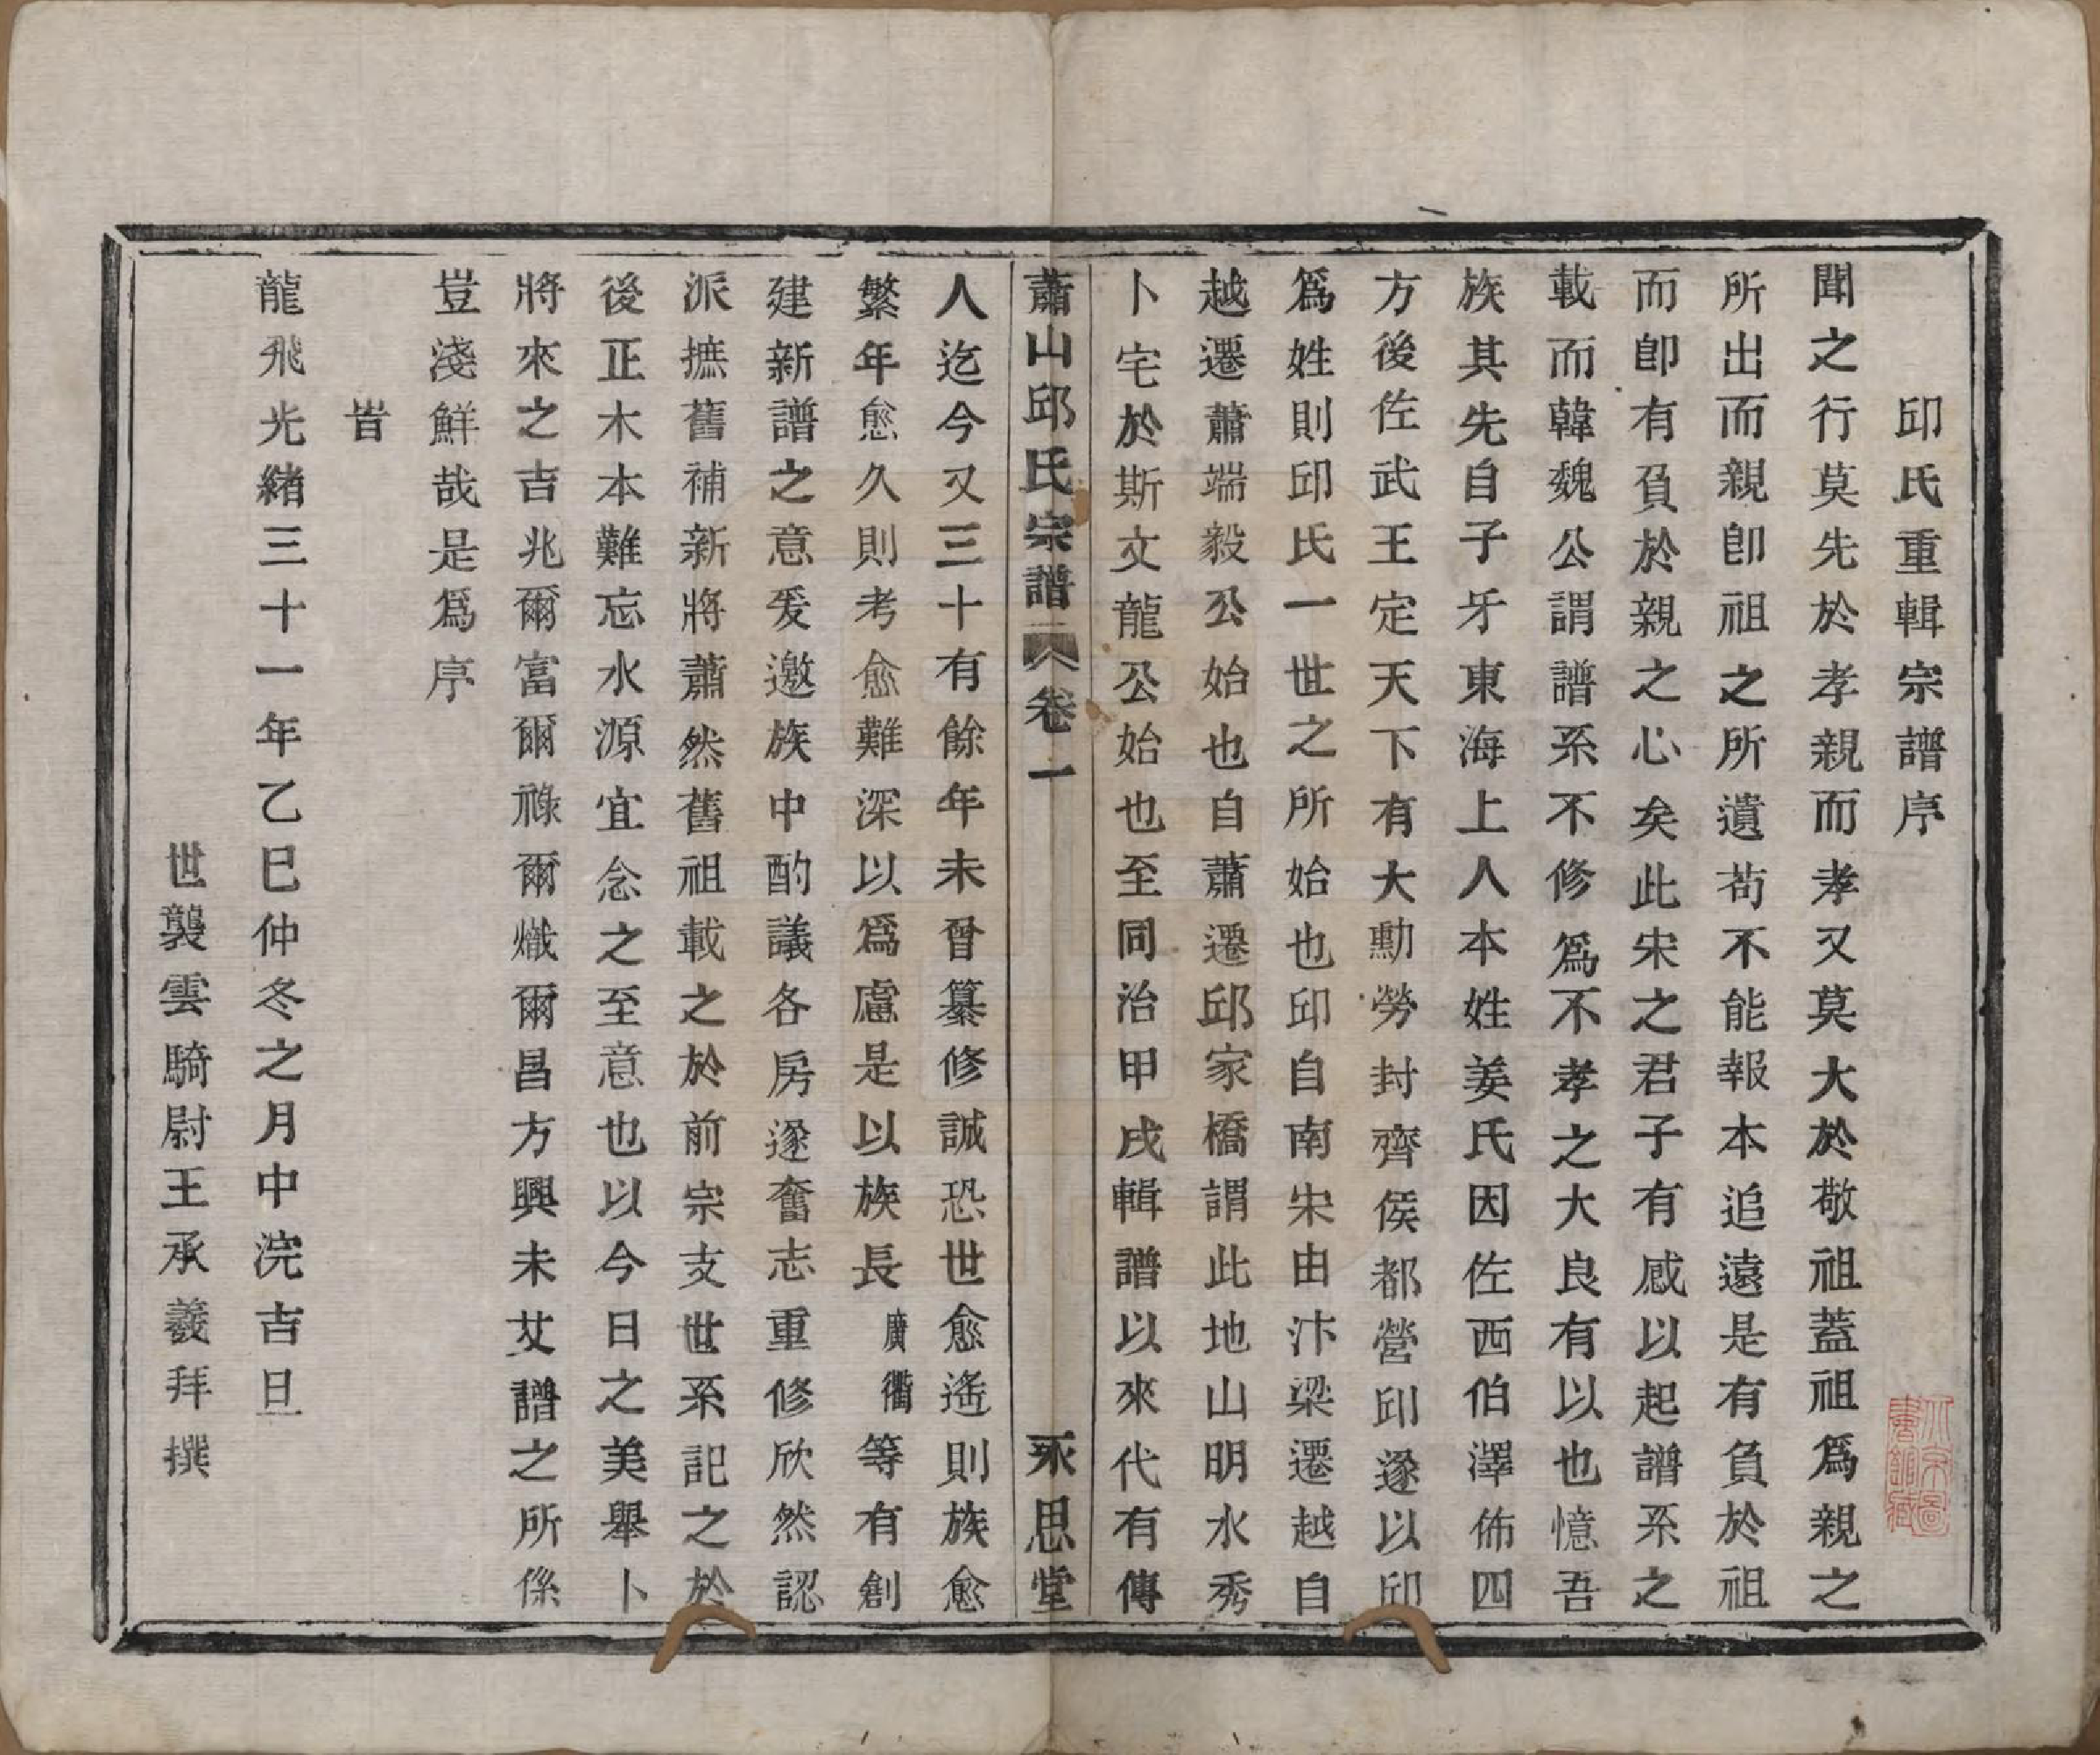 邱氏重輯宗譜序
聞之行莫先於孝親而孝又莫大於敬祖蓋祖爲親之
所出而親卽祖之所遺苟不能報本追遠是有負於祖
而卽有負於親之心矣此宋之君子有感以起譜系之
載而韓魏公謂譜系不修爲不孝之大良有以也憶吾
族其先自子牙東海上人本姓姜氏因佐西伯澤佈四
方後佐武王定天下有大勳勞封齊侯都營邱遂以邱
爲姓則邱氏一世之所始也邱自南宋由汴梁遷越自
越遷蕭端毅公始也自蕭遷邱家橋謂此地山明水秀
卜宅於斯文龍公始也至同治甲戌輯譜以來代有傳
蕭山邱氏宗譜 卷一 永思堂
人迄今又三十有餘年未曾纂修誠恐世愈遙則族愈
繁年愈久則考愈難深以爲慮是以族長廣衢等有創
建新譜之意爰邀族中酌議各房遂奮志重修欣然認
派摭舊補新將蕭然舊祖載之於前宗支世系記之於
後正木本難忘水源宜念之至意也以今日之美舉卜
將來之吉兆爾富爾祿爾熾爾昌方興未艾譜之所係
豈淺鮮哉是爲序
旹
龍飛光緒三十一年乙巳仲冬之月中浣吉旦
世襲雲騎尉王承羲拜撰
北京圖
書館藏